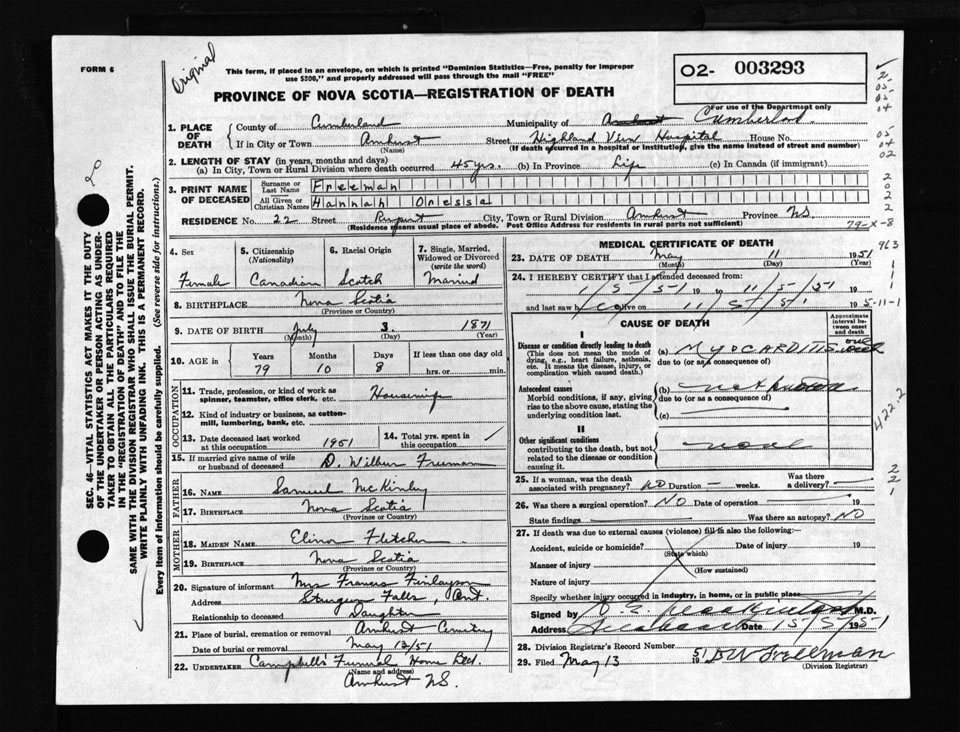 FORM 6
Original
This form, if placed in an envelope, on which is printed "Dominion Statistics—Free, penalty for improper
use $300," and properly addressed will pass through the mail "FREE"
PROVINCE OF NOVA SCOTIA—REGISTRATION OF DEATH
O2- 003293
For use of the Department only
1. PLACE OF DEATH
County of Cumberland Municipality of Cumberland
If in City or Town Amherst (Name) Street Highland View Hospital House No.
(If death occurred in a hospital or institution, give the name instead of street and number)
2. LENGTH OF STAY (in years, months and days)
(a) In City, Town or Rural Division where death occurred 45 yrs. (b) In Province Life (c) In Canada (if immigrant)
3. PRINT NAME OF DECEASED
Surname or Last Name Freeman
All Given or Christian Names Hannah Onessa
RESIDENCE No. 22 Street Rupert City, Town or Rural Division Amherst Province N.S.
(Residence means usual place of abode. Post Office Address for residents in rural parts not sufficient)
79-X-8
4. Sex
Female
5. Citizenship (Nationality)
Canadian
6. Racial Origin
Scotch
7. Single, Married, Widowed or Divorced (write the word)
Married
8. BIRTHPLACE Nova Scotia
(Province or Country)
9. DATE OF BIRTH July 3 1871
(Month) (Day) (Year)
10. AGE in Years Months Days If less than one day old
79 10 8 hrs. or min.
OCCUPATION
11. Trade, profession, or kind of work as spinner, teamster, office clerk, etc. Housewife
12. Kind of industry or business, as cotton-mill, lumbering, bank, etc.
13. Date deceased last worked at this occupation 1951
14. Total yrs. spent in this occupation
15. If married give name of wife or husband of deceased D. Wilbur Freeman
FATHER
16. NAME Samuel McKinley
17. BIRTHPLACE Nova Scotia
(Province or Country)
MOTHER
18. MAIDEN NAME Elinor Fletcher
19. BIRTHPLACE Nova Scotia
(Province or Country)
20. Signature of informant Mrs Francis Finlayson
Address Sturgeon Falls, Ont.
Relationship to deceased Daughter
21. Place of burial, cremation or removal Amherst Cemetery
Date of burial or removal May 13/51
22. UNDERTAKER Campbell's Funeral Home
(Name and address)
Amherst N.S.
MEDICAL CERTIFICATE OF DEATH
23. DATE OF DEATH May 11 1951
(Month) (Day) (Year)
24. I HEREBY CERTIFY that I attended deceased from:
1/5/51 19 to 11/5/51 19
and last saw h alive on 11/5/51 19
5-11-1
CAUSE OF DEATH
Approximate interval between onset and death
I
Disease or condition directly leading to death
(This does not mean the mode of dying, e.g., heart failure, asthenia, etc. It means the disease, injury, or complication which caused death.)
(a) MYOCARDITIS one week
due to (or as a consequence of)
Antecedent causes
Morbid conditions, if any, giving rise to the above cause, stating the underlying condition last.
(b) not known
due to (or as a consequence of)
(c)
II
Other significant conditions
contributing to the death, but not related to the disease or condition causing it.
none
25. If a woman, was the death associated with pregnancy? NO Duration — weeks. Was there a delivery?
26. Was there a surgical operation? NO Date of operation 19
State findings Was there an autopsy? NO
27. If death was due to external causes (violence) fill in also the following:
Accident, suicide or homicide? Date of injury 19
(State which)
Manner of injury
(How sustained)
Nature of injury
Specify whether injury occurred in industry, in home, or in public place
Signed by M.D.
Address Date 15/5/1951
28. Division Registrar's Record Number
29. Filed May 13 1951
(Division Registrar)
SEC. 46—VITAL STATISTICS ACT MAKES IT THE DUTY
OF THE UNDERTAKER OR PERSON ACTING AS UNDERTAKER TO OBTAIN ALL THE PARTICULARS REQUIRED
IN THE "REGISTRATION OF DEATH" AND TO FILE THE
SAME WITH THE DIVISION REGISTRAR WHO SHALL ISSUE THE BURIAL PERMIT.
WRITE PLAINLY WITH UNFADING INK. THIS IS A PERMANENT RECORD.
Every item of information should be carefully supplied. (See reverse side for instructions.)
963
422.2